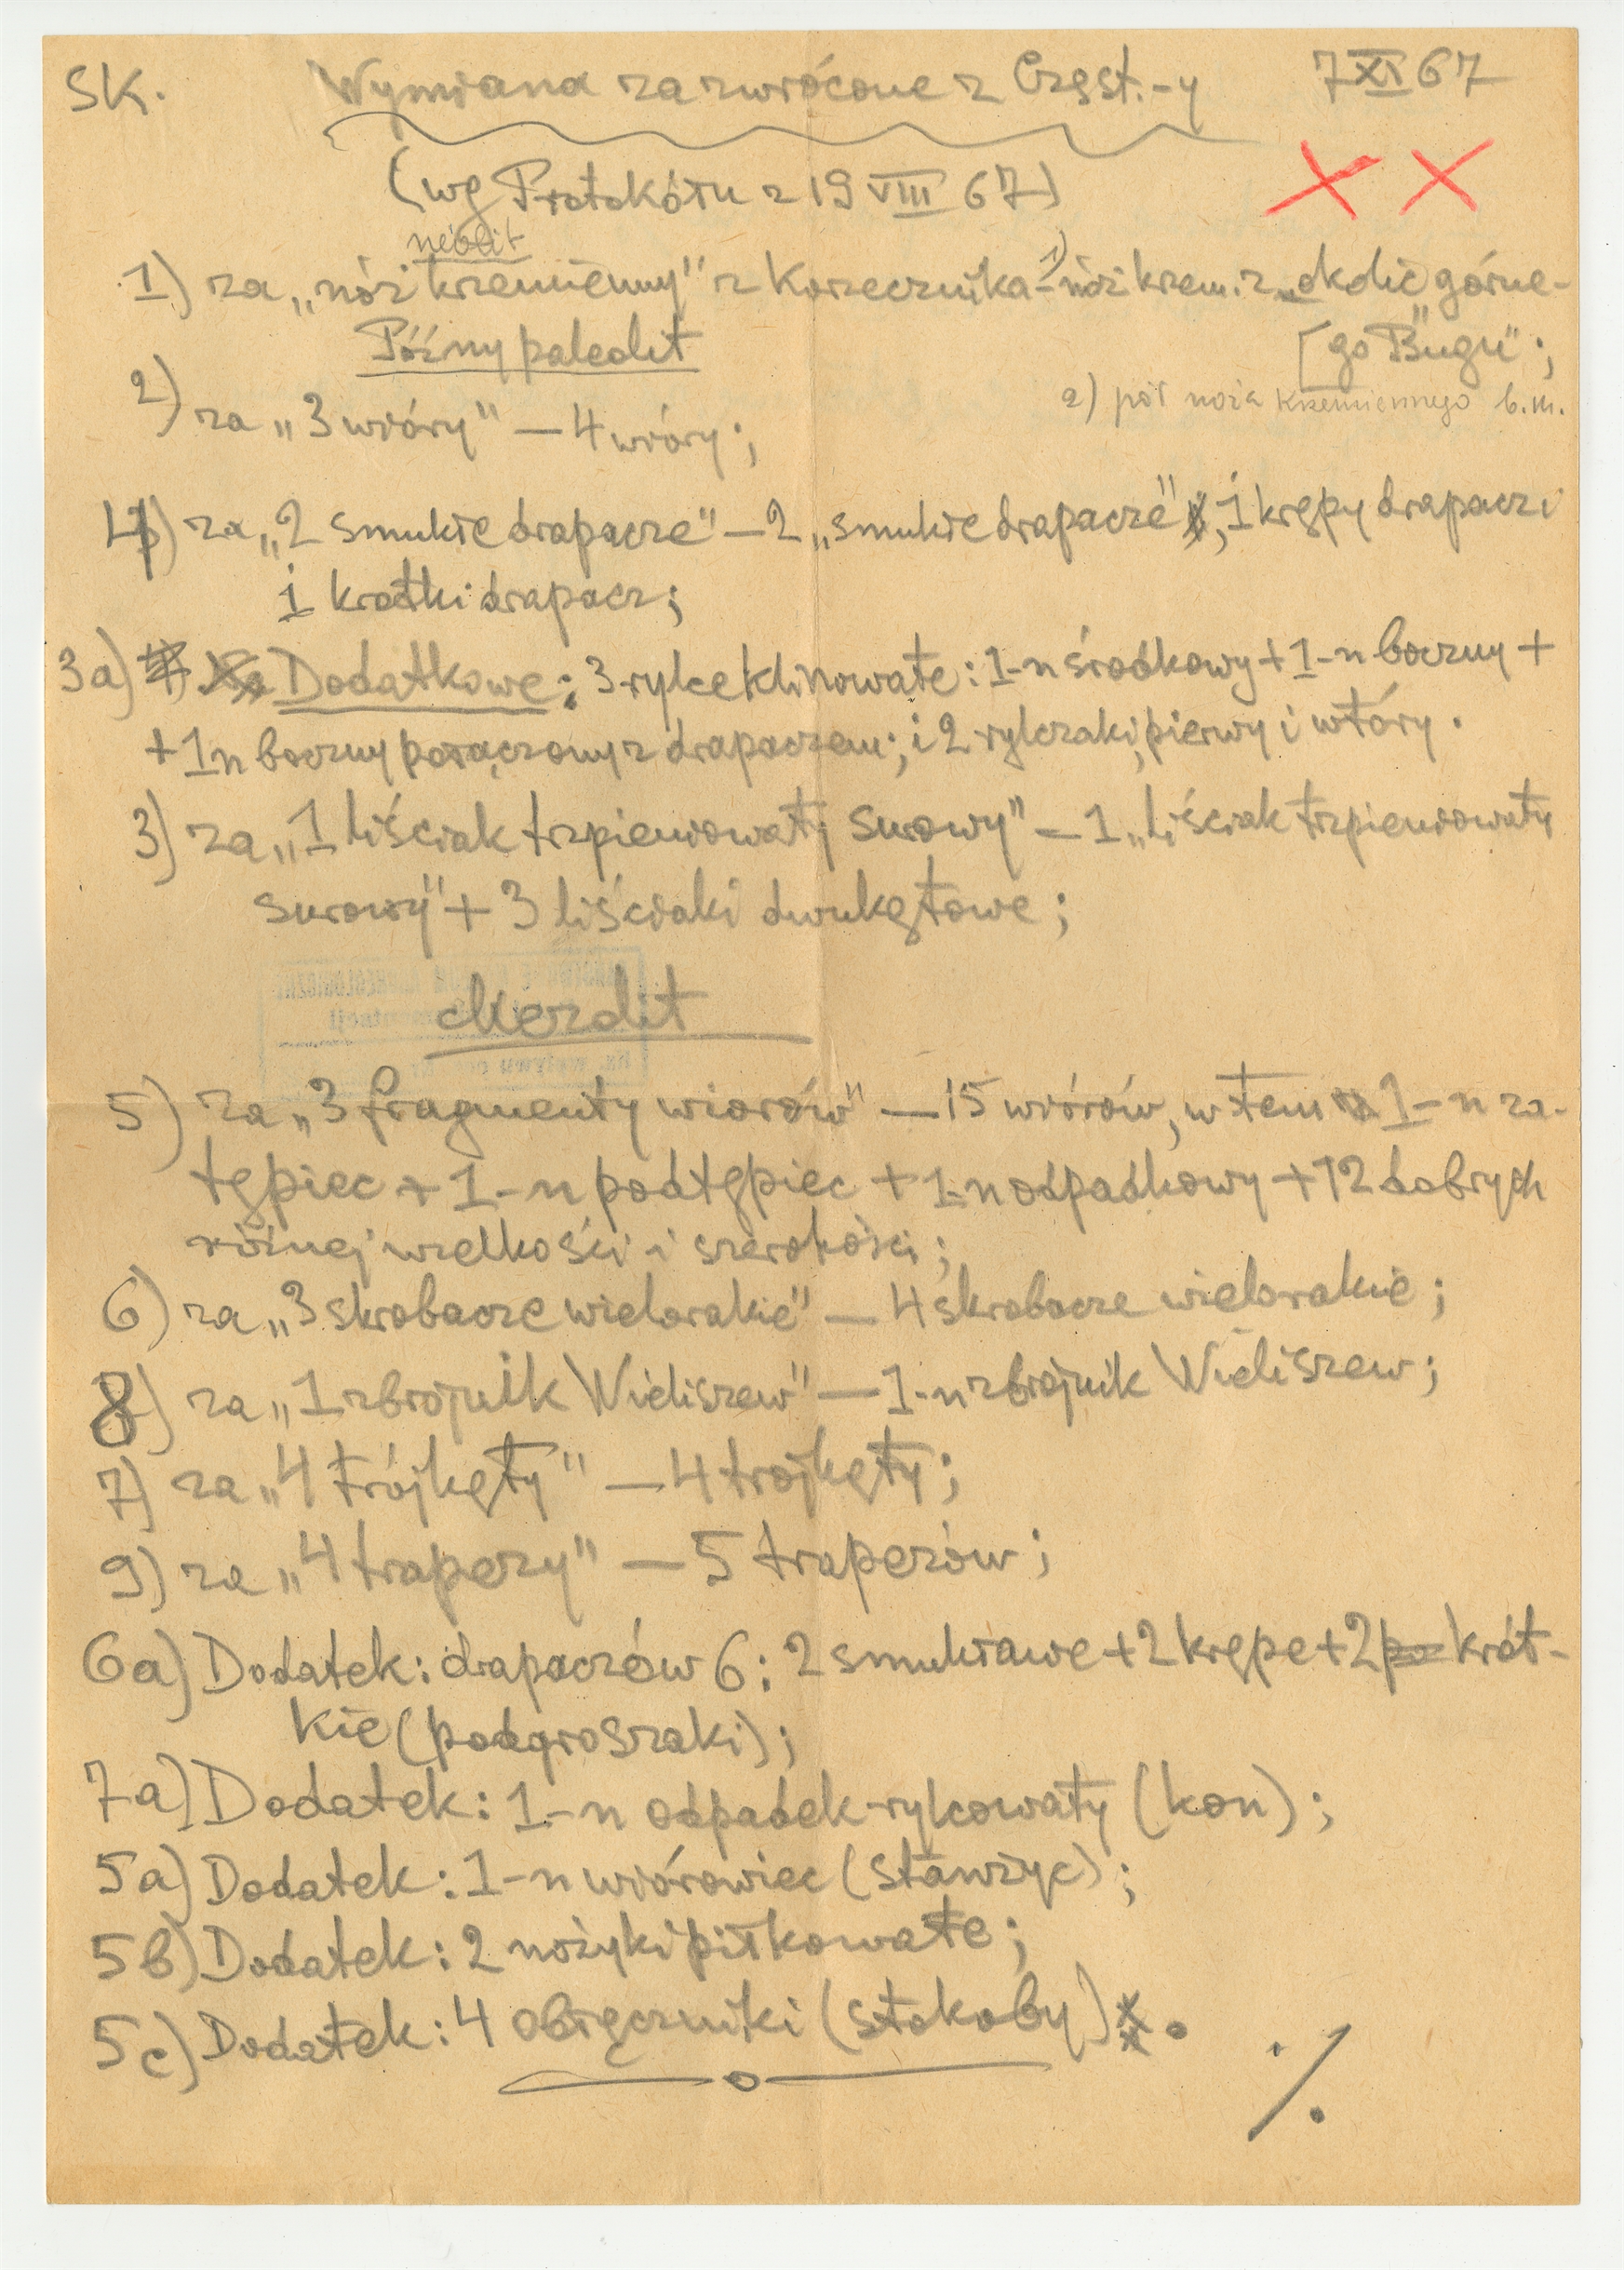 SK. Wymiana za zwrócone z Częst.-y 7 XI 67
(wg Protokółu z 19 VIII 67)
neolit
1) za „nóż krzemienny" z Korzecznika – 1) nóż krzem. z „okolic górne-
[go Bugu";
Późny paleolit
2) pół noża krzemiennego b.m.
2) za „3 wióry" – 4 wióry;
4) za „2 smukłe drapacze" – 2 „smukłe drapacze", 1 krępy drapacz i
1 krótki drapacz;
3a) Dodatkowe: 3 rylce klinowate: 1-n środkowy + 1-n boczny +
+ 1n boczny połączony z drapaczem; i 2 rylczaki, pierwy i wtóry.
3) za „1 liściak trzpieniowaty surowy" – 1 „liściak trzpieniowaty
surowy" + 3 liściaki dwukątowe;
Mezolit
5) za „3 fragmenty wiórów" – 15 wiórów, w tem 1-n za-
tępiec + 1-n podtępiec + 1-n odpadkowy + 12 dobrych
różnej wielkości i szerokości;
6) za „3 skrobacze wielorakie" – 4 skrobacze wielorakie;
8) za „1 zbrojnik Wieliszew" – 1-n zbrojnik Wieliszew;
7) za „4 trójkąty" – 4 trójkąty;
9) za „4 trapezy" – 5 trapezów;
6a) Dodatek: drapaczów 6: 2 smukławe + 2 krępe + 2 krót-
kie (podgroszaki);
7a) Dodatek: 1-n odpadek rylcowaty (kon);
5a) Dodatek: 1-n wiórowiec (stawżyc);
5b) Dodatek: 2 nożyki piłkowate;
5c) Dodatek: 4 obłęczniki (stokoby).
./.